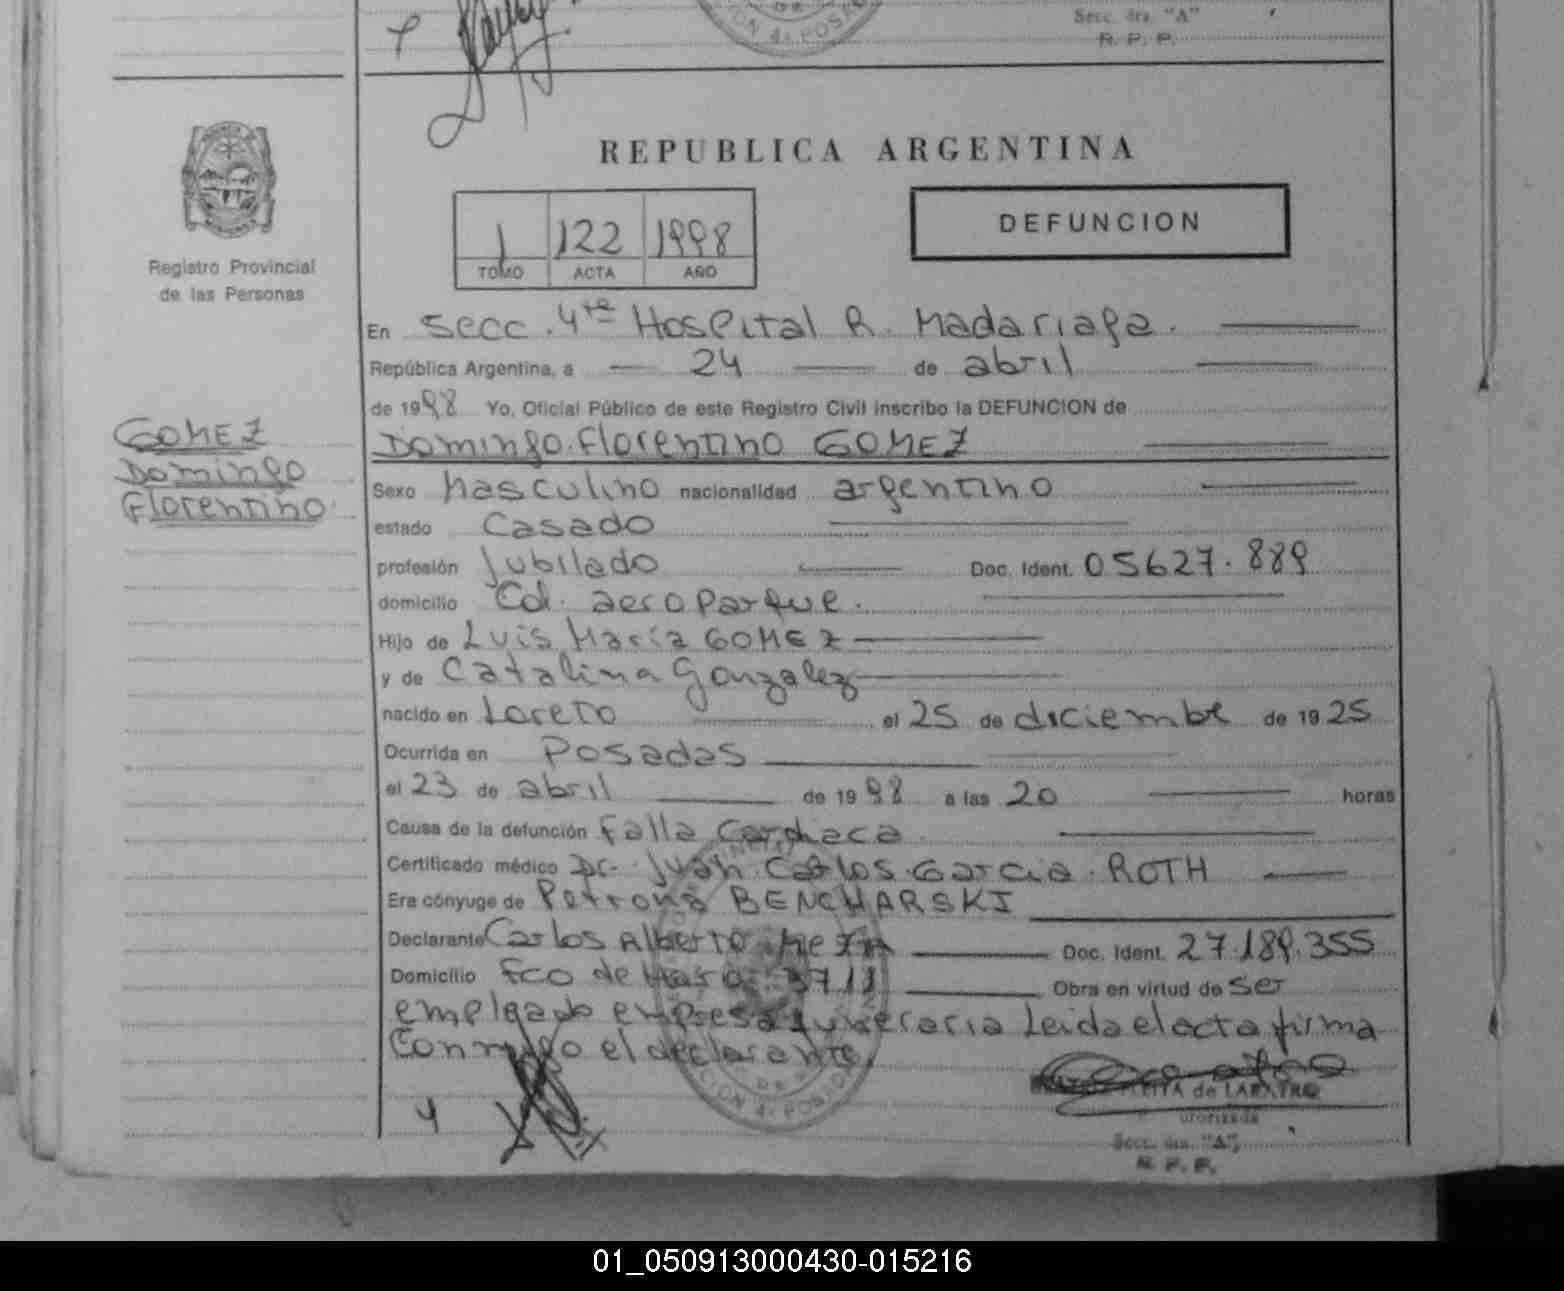 Secc. 4ta. "A"
R. P. P.
REPUBLICA ARGENTINA
DEFUNCION
1 122 1998
TOMO ACTA AÑO
Registro Provincial
de las Personas
En Secc. 4ta Hospital R. Madariaga.
República Argentina, a 24 de abril
de 1998 Yo, Oficial Público de este Registro Civil inscribo la DEFUNCION de
Domingo Florentino GOMEZ
GOMEZ
Domingo
Florentino
Sexo Masculino nacionalidad argentino
estado Casado
profesión Jubilado Doc. Ident. 05627.889
domicilio Col. aeroparque.
Hijo de Luis María GOMEZ
y de Catalina Gonzalez
nacido en Loreto el 25 de diciembre de 1925
Ocurrida en Posadas
el 23 de abril de 1998 a las 20 horas
Causa de la defunción Falla Cardiaca
Certificado médico Dr. Juan Carlos Garcia ROTH
Era cónyuge de Petrona BENCHARSKI
Declarante Carlos Alberto Doc. Ident. 27.189.355
Domicilio Fco de Haro 3711 Obra en virtud de ser
empleado empresa funeraria Leida el acta firma
Conmigo el declarante,
de LABATRO
Secc. 4ta. "A"
R. P. P.
01_050913000430-015216